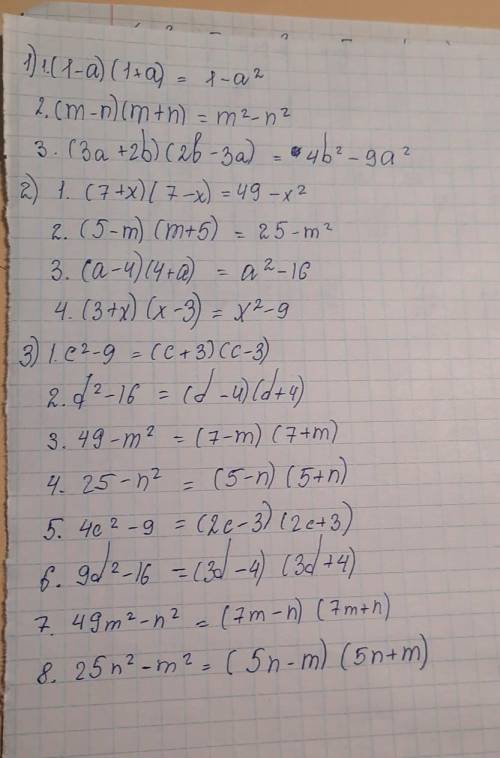 1) 1. (1-a)(1+a) = 1-a²
2. (m-n)(m+n) = m²-n²
3. (3a+2b)(2b-3a) = 4b²-9a²
2) 1. (7+x)(7-x) = 49-x²
2. (5-m)(m+5) = 25-m²
3. (a-4)(4+a) = a²-16
4. (3+x)(x-3) = x²-9
3) 1. c²-9 = (c+3)(c-3)
2. d²-16 = (d-4)(d+4)
3. 49-m² = (7-m)(7+m)
4. 25-n² = (5-n)(5+n)
5. 4c²-9 = (2c-3)(2c+3)
6. 9d²-16 = (3d-4)(3d+4)
7. 49m²-n² = (7m-n)(7m+n)
8. 25n²-m² = (5n-m)(5n+m)